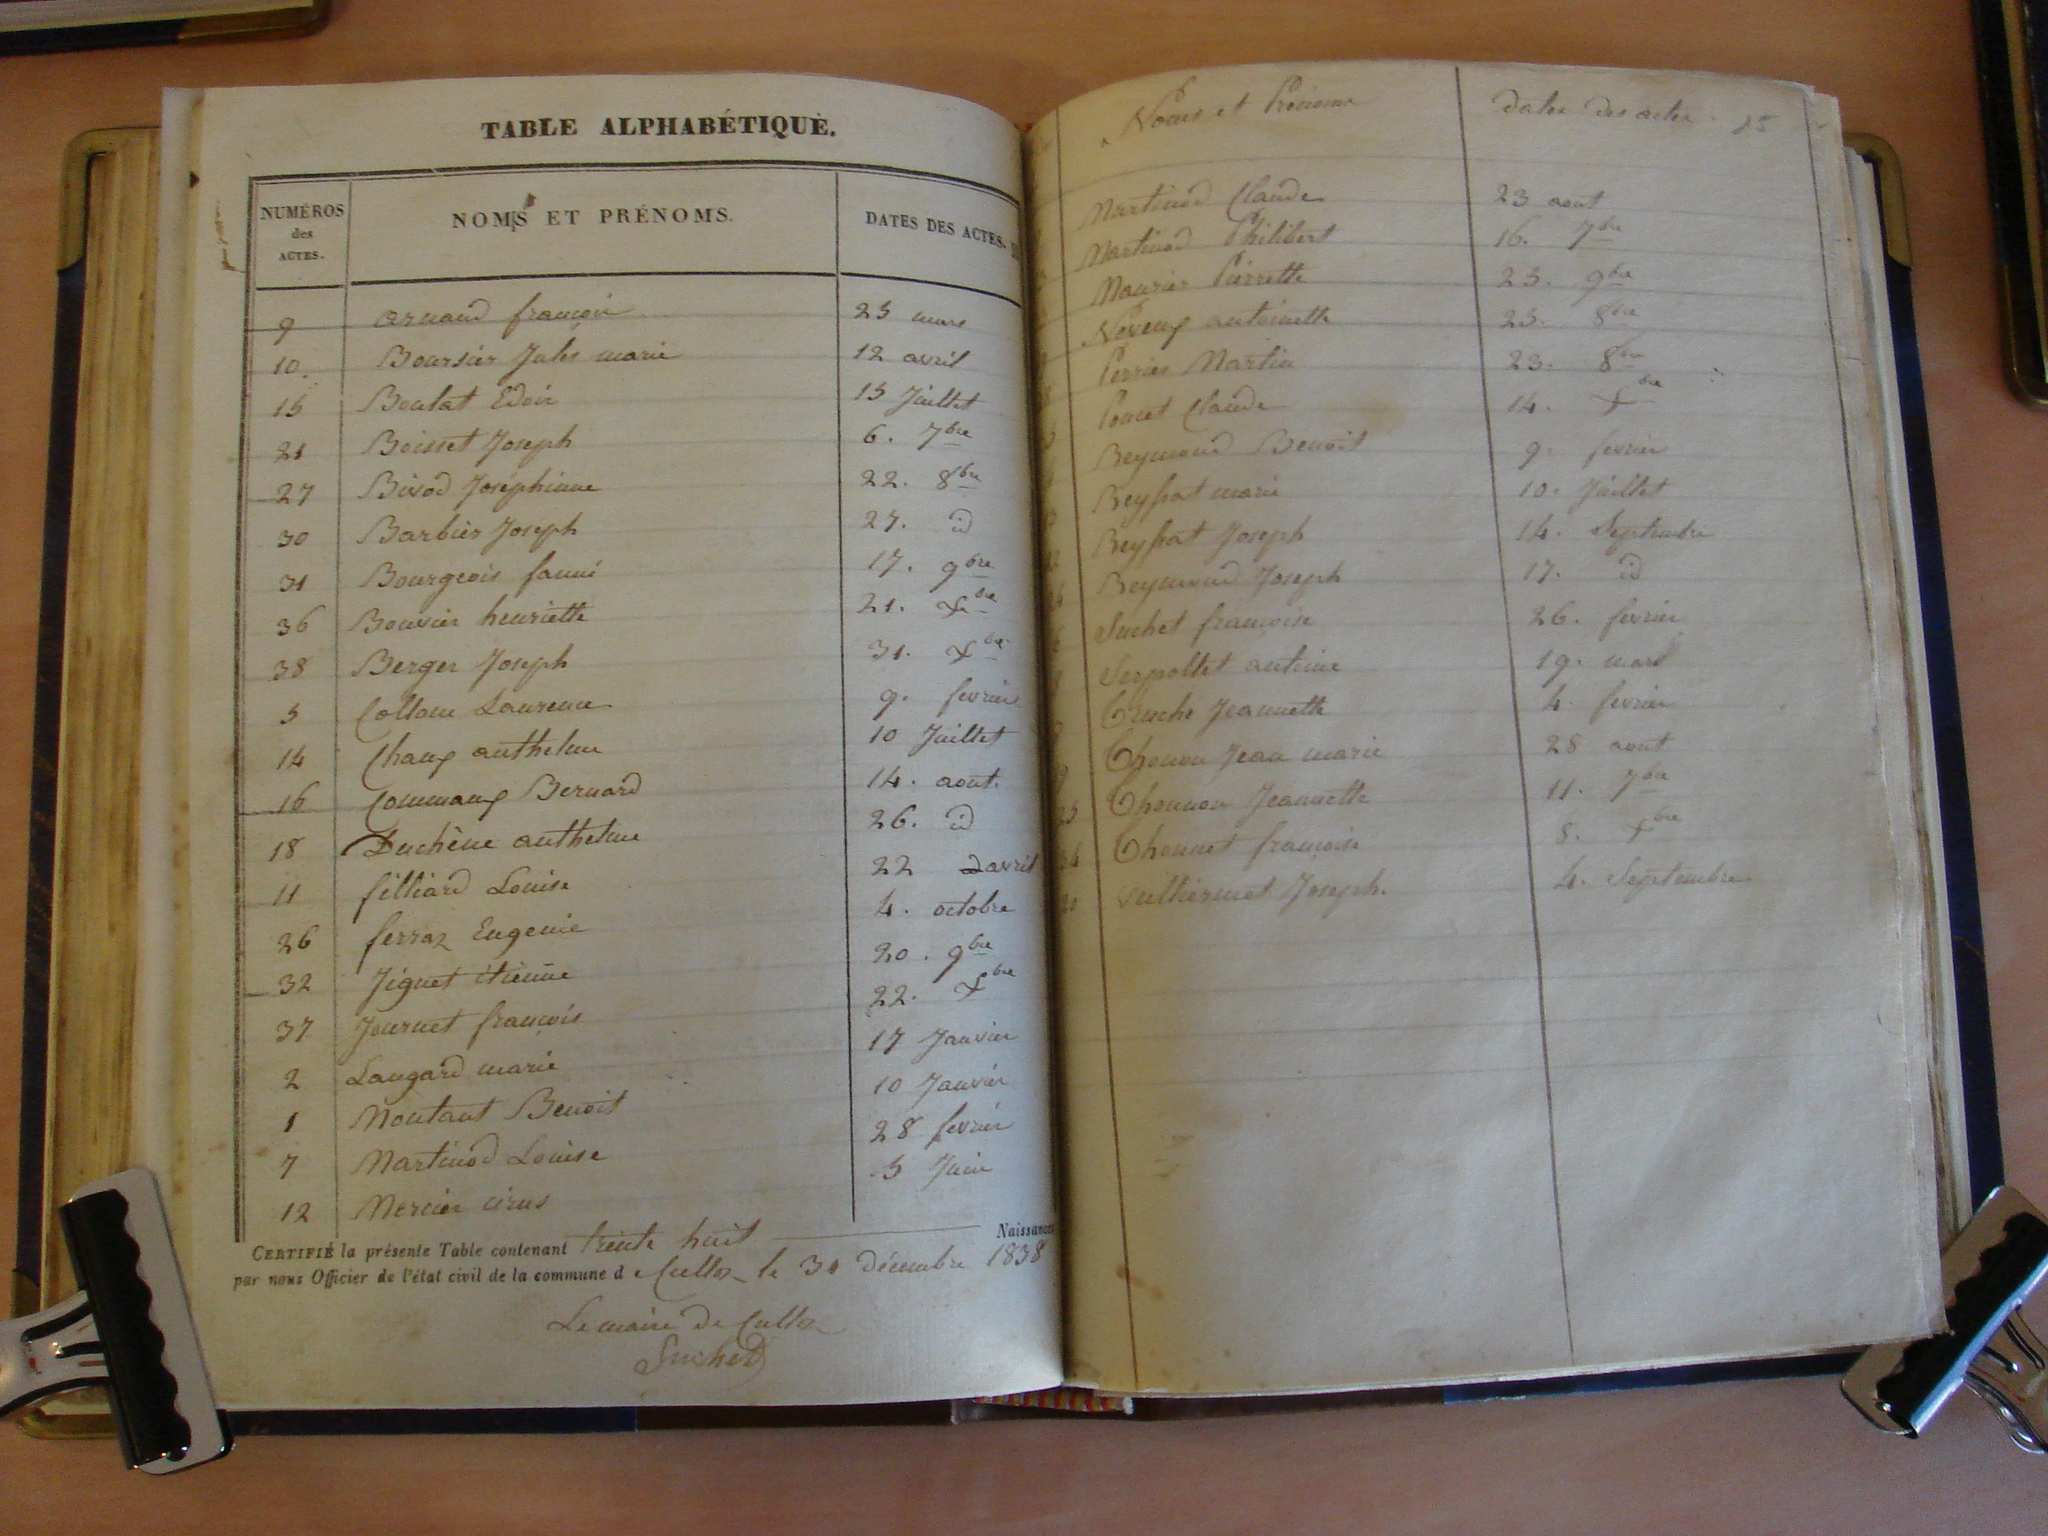 TABLE ALPHABÉTIQUE.
NUMÉROS des ACTES. NOMS ET PRÉNOMS. DATES DES ACTES.
9 arnaud françois 25 mars
10. Boursier Jules marie 12 avril
15 Boulat Edoir 15 Juillet
21 Boisset Joseph 6. 7bre
27 Bivod Joséphinne 22. 8bre
30 Barbier Joseph 27. id
31 Bourgeois fanni 17. 9bre
36 Bouvier henriette 21. Xbre
38 Berger Joseph 31. Xbre
5 Collom Laurence 9. fevrier
14 Chaux anthelme 10 Juillet
16 Commaux Bernard 14. aout.
18 Duchêne anthelme 26. id
11 filliard Louise 22 avril
26 ferraz Eugenie 4. octobre
32 Jiguet étienne 20. 9bre
37 Journet françois 22. Xbre
2 Laugard marie 17 Janvier
1 Montant Benoit 10 Janvier
7 Martinod Louise 28 fevrier
12 Mercier cirus 5 Juin
CERTIFIÉ la présente Table contenant trente huit Naissances
par nous Officier de l'état civil de la commune d Culloz le 31 décembre 1838
Le maire de Culloz
Suchet
Noms et Prénoms dates des actes. 25
Martinod Claude 23 aout
Martinod Philibert 16. 7bre
Maurier Pierrette 25. 9bre
Neveux antoinette 25. 8bre
Perrier Martin 23. 8bre
Poncet Claude 14. Xbre
Reymond Benoit 9. fevrier
Reyssat marie 10. Juillet
Reyssat Joseph 14. Septembre
Reymond Joseph 17. id
Suchet françoise 26. fevrier
Serpollet antoine 19. mars
Truche Jeannette 4. fevrier
Thonon Jean marie 28 aout
25 Thonnon Jeannette 11. 7bre
34 Thonnet françoise 8. Xbre
20 vulliermet Joseph. 4. Septembre